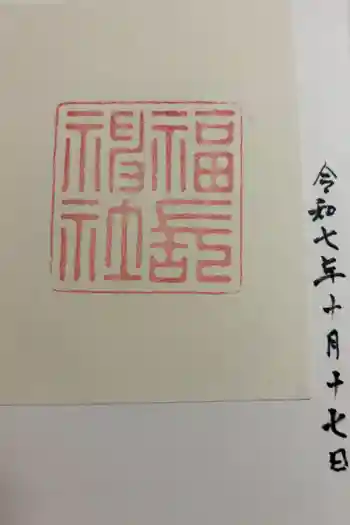 福長
神社
令和七年十月十七日